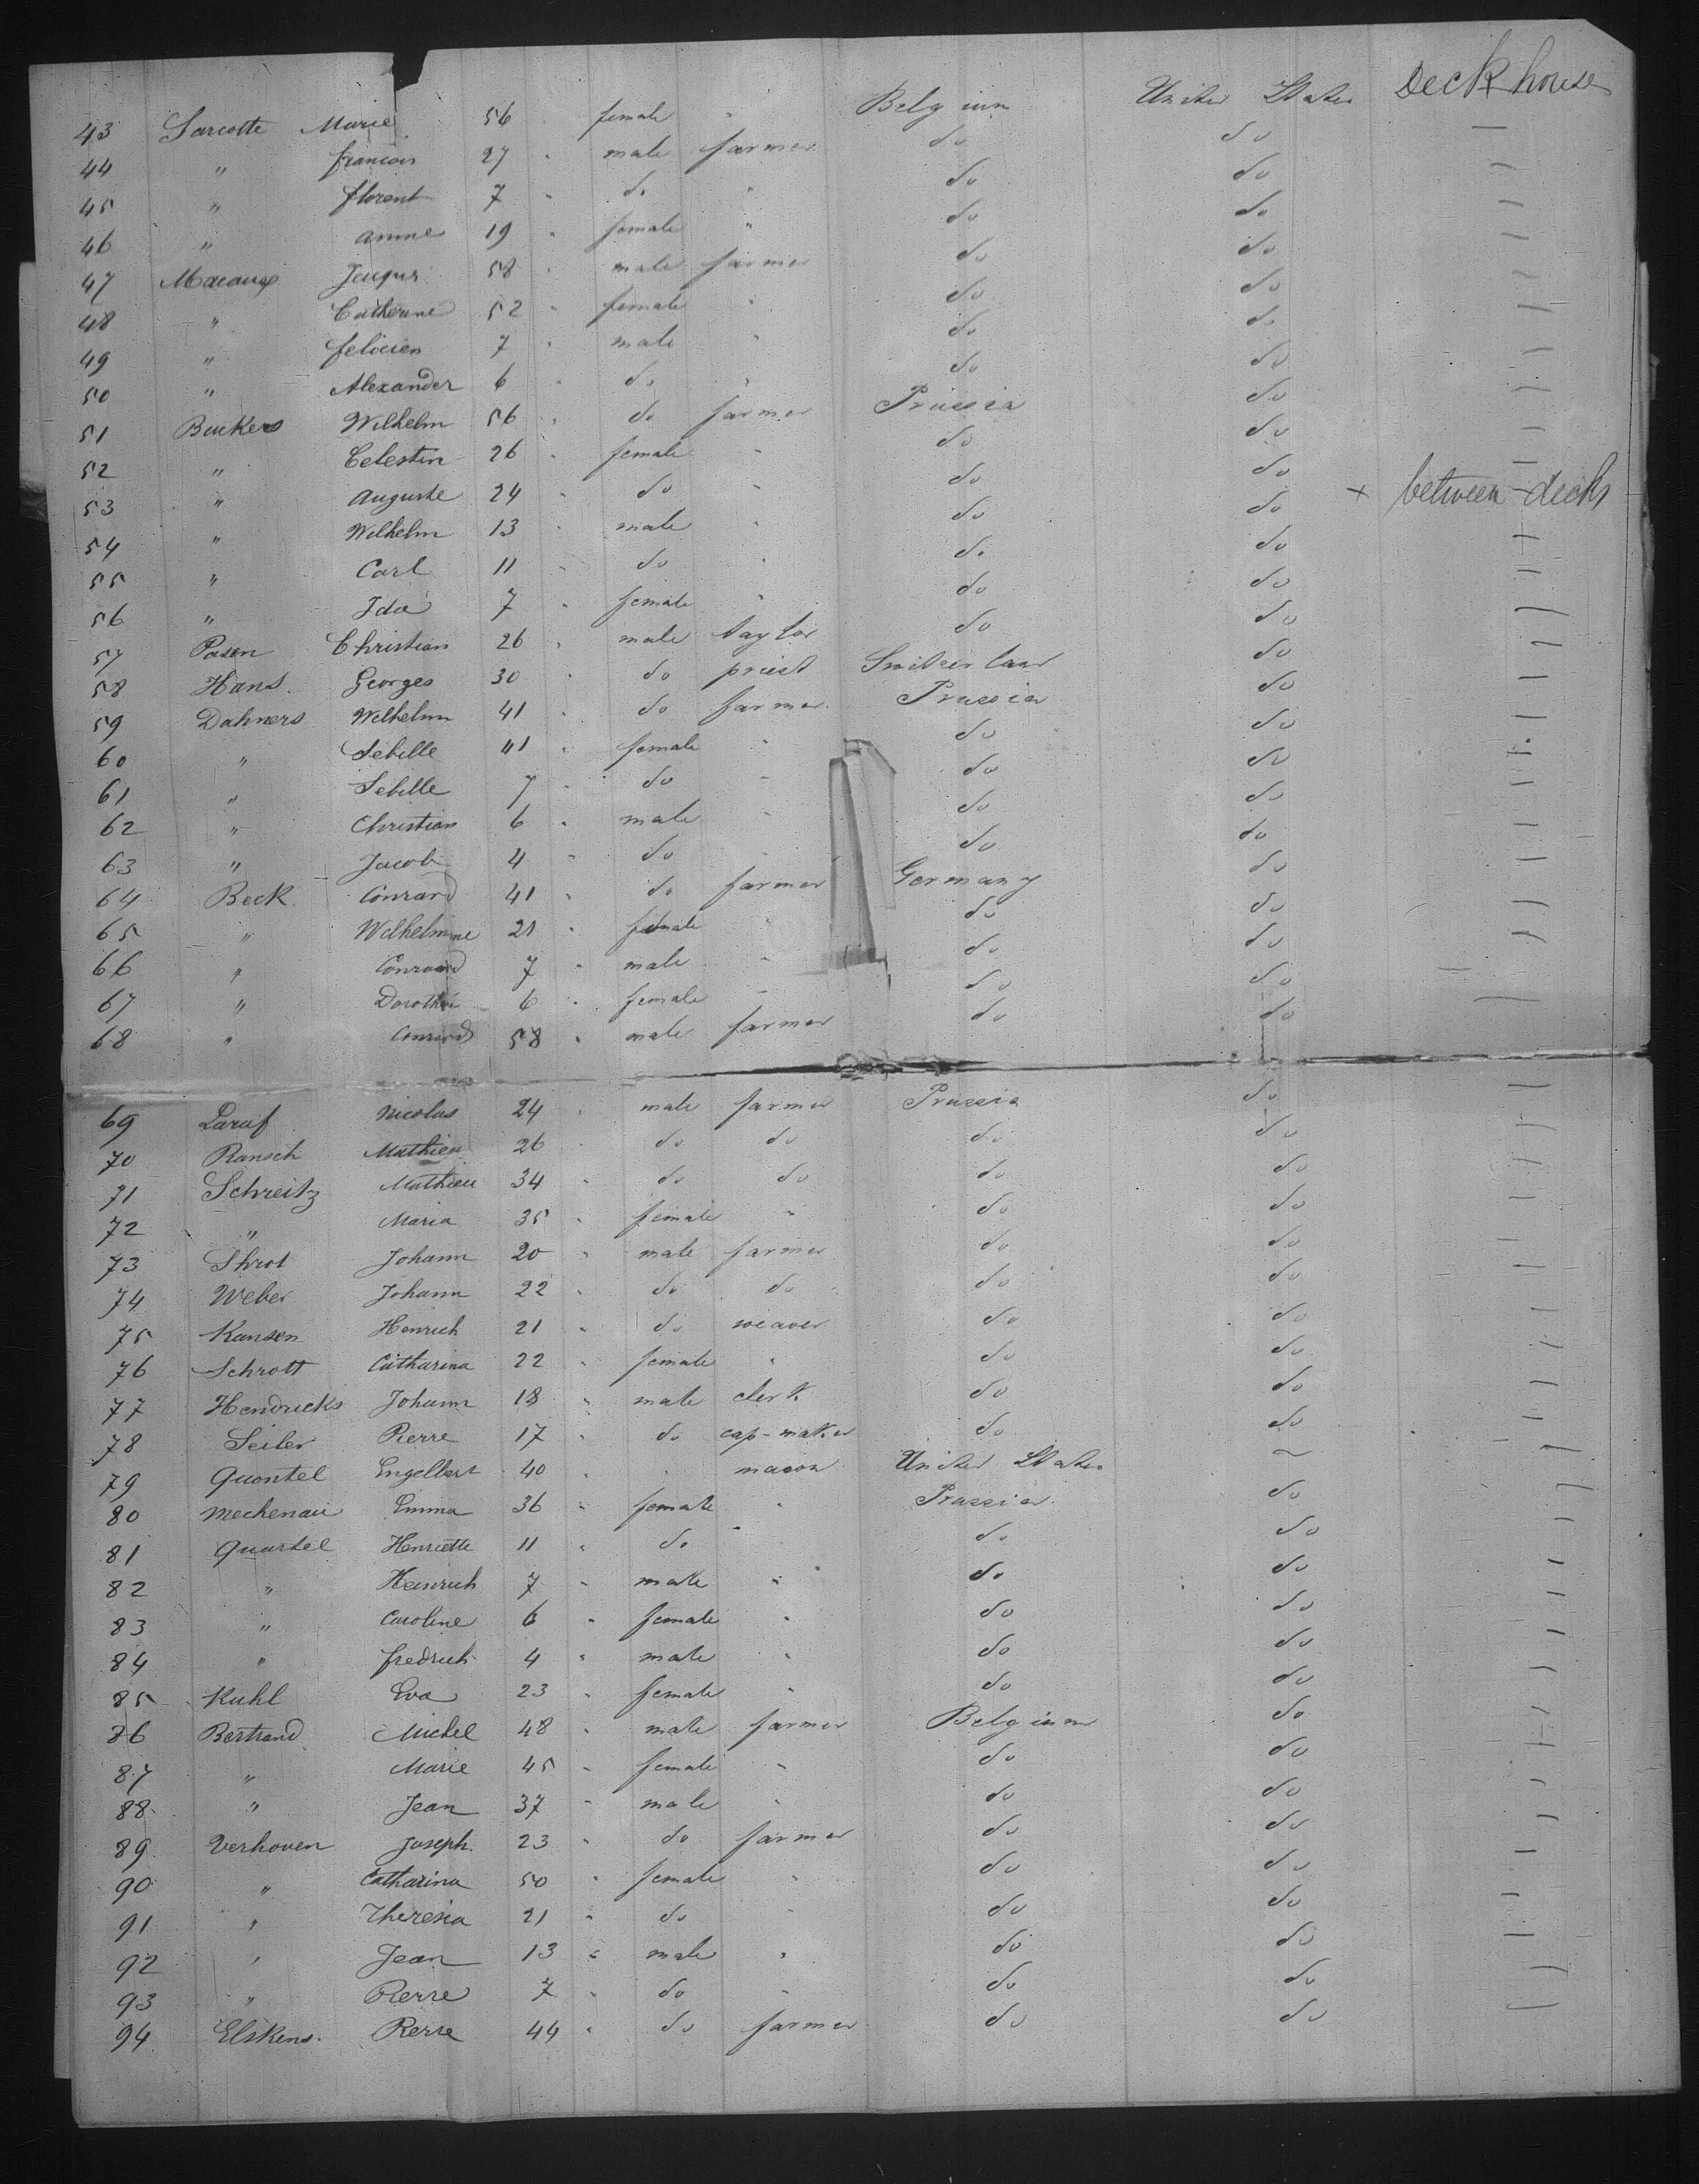 43 Sarcotte Marie 56 " female " Belgium United States Deckhouse
44 " francois 27 " male farmer do do
45 " florent 7 " do " do do
46 " anne 19 " female " do do
47 Macaux Jaques 58 " male farmer do do
48 " Catherine 52 " female " do do
49 " felicien 7 " male " do do
50 " Alexander 6 " do " do do
51 Buckers Wilhelm 56 " do farmer Prussia do
52 " Celestin 26 " female " do do
53 " Auguste 24 " do " do do + between decks
54 " Wilhelm 13 " male " do do
55 " Carl 11 " do " do do
56 " Ida 7 " female " do do
57 Posen Christian 26 " male taylor do do
58 Hans. Georges 30 " do priest Switzerland do
59 Dahners Wilhelm 41 " do farmer Prussia do
60 " Sebille 41 " female " do do
61 " Sebille 7 " do " do do
62 " Christian 6 " male " do do
63 " Jacob 4 " do " do do
64 Beck Conrard 41 " do farmer Germany do
65 " Wilhelmine 21 " female " do do
66 " Conrard 7 " male " do do
67 " Dorothé 6 " female " do do
68 " Conrard 58 " male farmer do do
69 Laruf Nicolas 24 " male farmer Prussia do
70 Ransch Mathieu 26 " do do do do
71 Schreitz Mathieu 34 " do do do do
72 " Maria 35 " female " do do
73 Shrot Johann 20 " male farmer do do
74 Weber Johann 22 " do do do do
75 Kansen Henrich 21 " do weaver do do
76 Schrott Catharina 22 " female " do do
77 Hendricks Johann 18 " male clerk do do
78 Seiler Pierre 17 " do cap-maker do do
79 Quontel Engelbert 40 " " mason United States ~
80 Mechenau Emma 36 " female " Prussia do
81 Quartel Henriette 11 " do " do do
82 " Heinrich 7 " male " do do
83 " Caroline 6 " female " do do
84 " fredrich 4 " male " do do
85 Kuhl Eva 23 " female " do do
86 Bertrand Michel 48 " male farmer Belgium do
87 " Marie 45 " female " do do
88 " Jean 37 " male " do do
89 Verhoven Joseph 23 " do farmer do do
90 " Catharina 50 " female " do do
91 " Theresia 21 " do " do do
92 " Jean 13 " male " do do
93 " Pierre 7 " do " do do
94 Elskens. Pierre 44 " do farmer do do